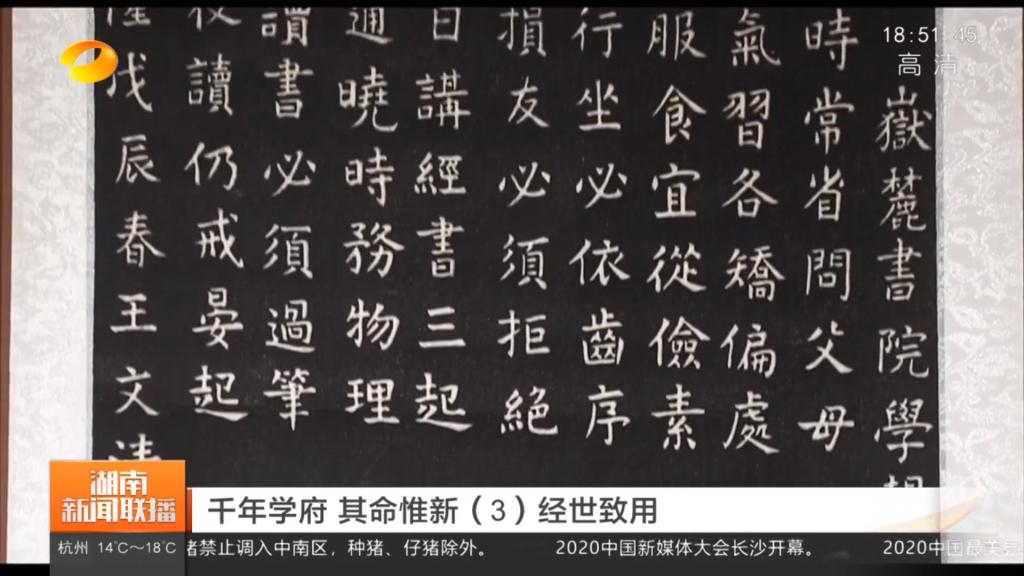 18:51:45
高清
嶽麓書院學
時常省問父母
氣習各矯偏處
服食宜從儉素
行坐必依齒序
損友必須拒絕
日講經書三起
通曉時務物理
讀書必須過筆
夜讀仍戒晏起
隆戊辰春王文清
湖南
新闻联播
千年学府 其命惟新（3）经世致用
杭州 14℃～18℃
猪禁止调入中南区，种猪、仔猪除外。 2020中国新媒体大会长沙开幕。 2020中国最美